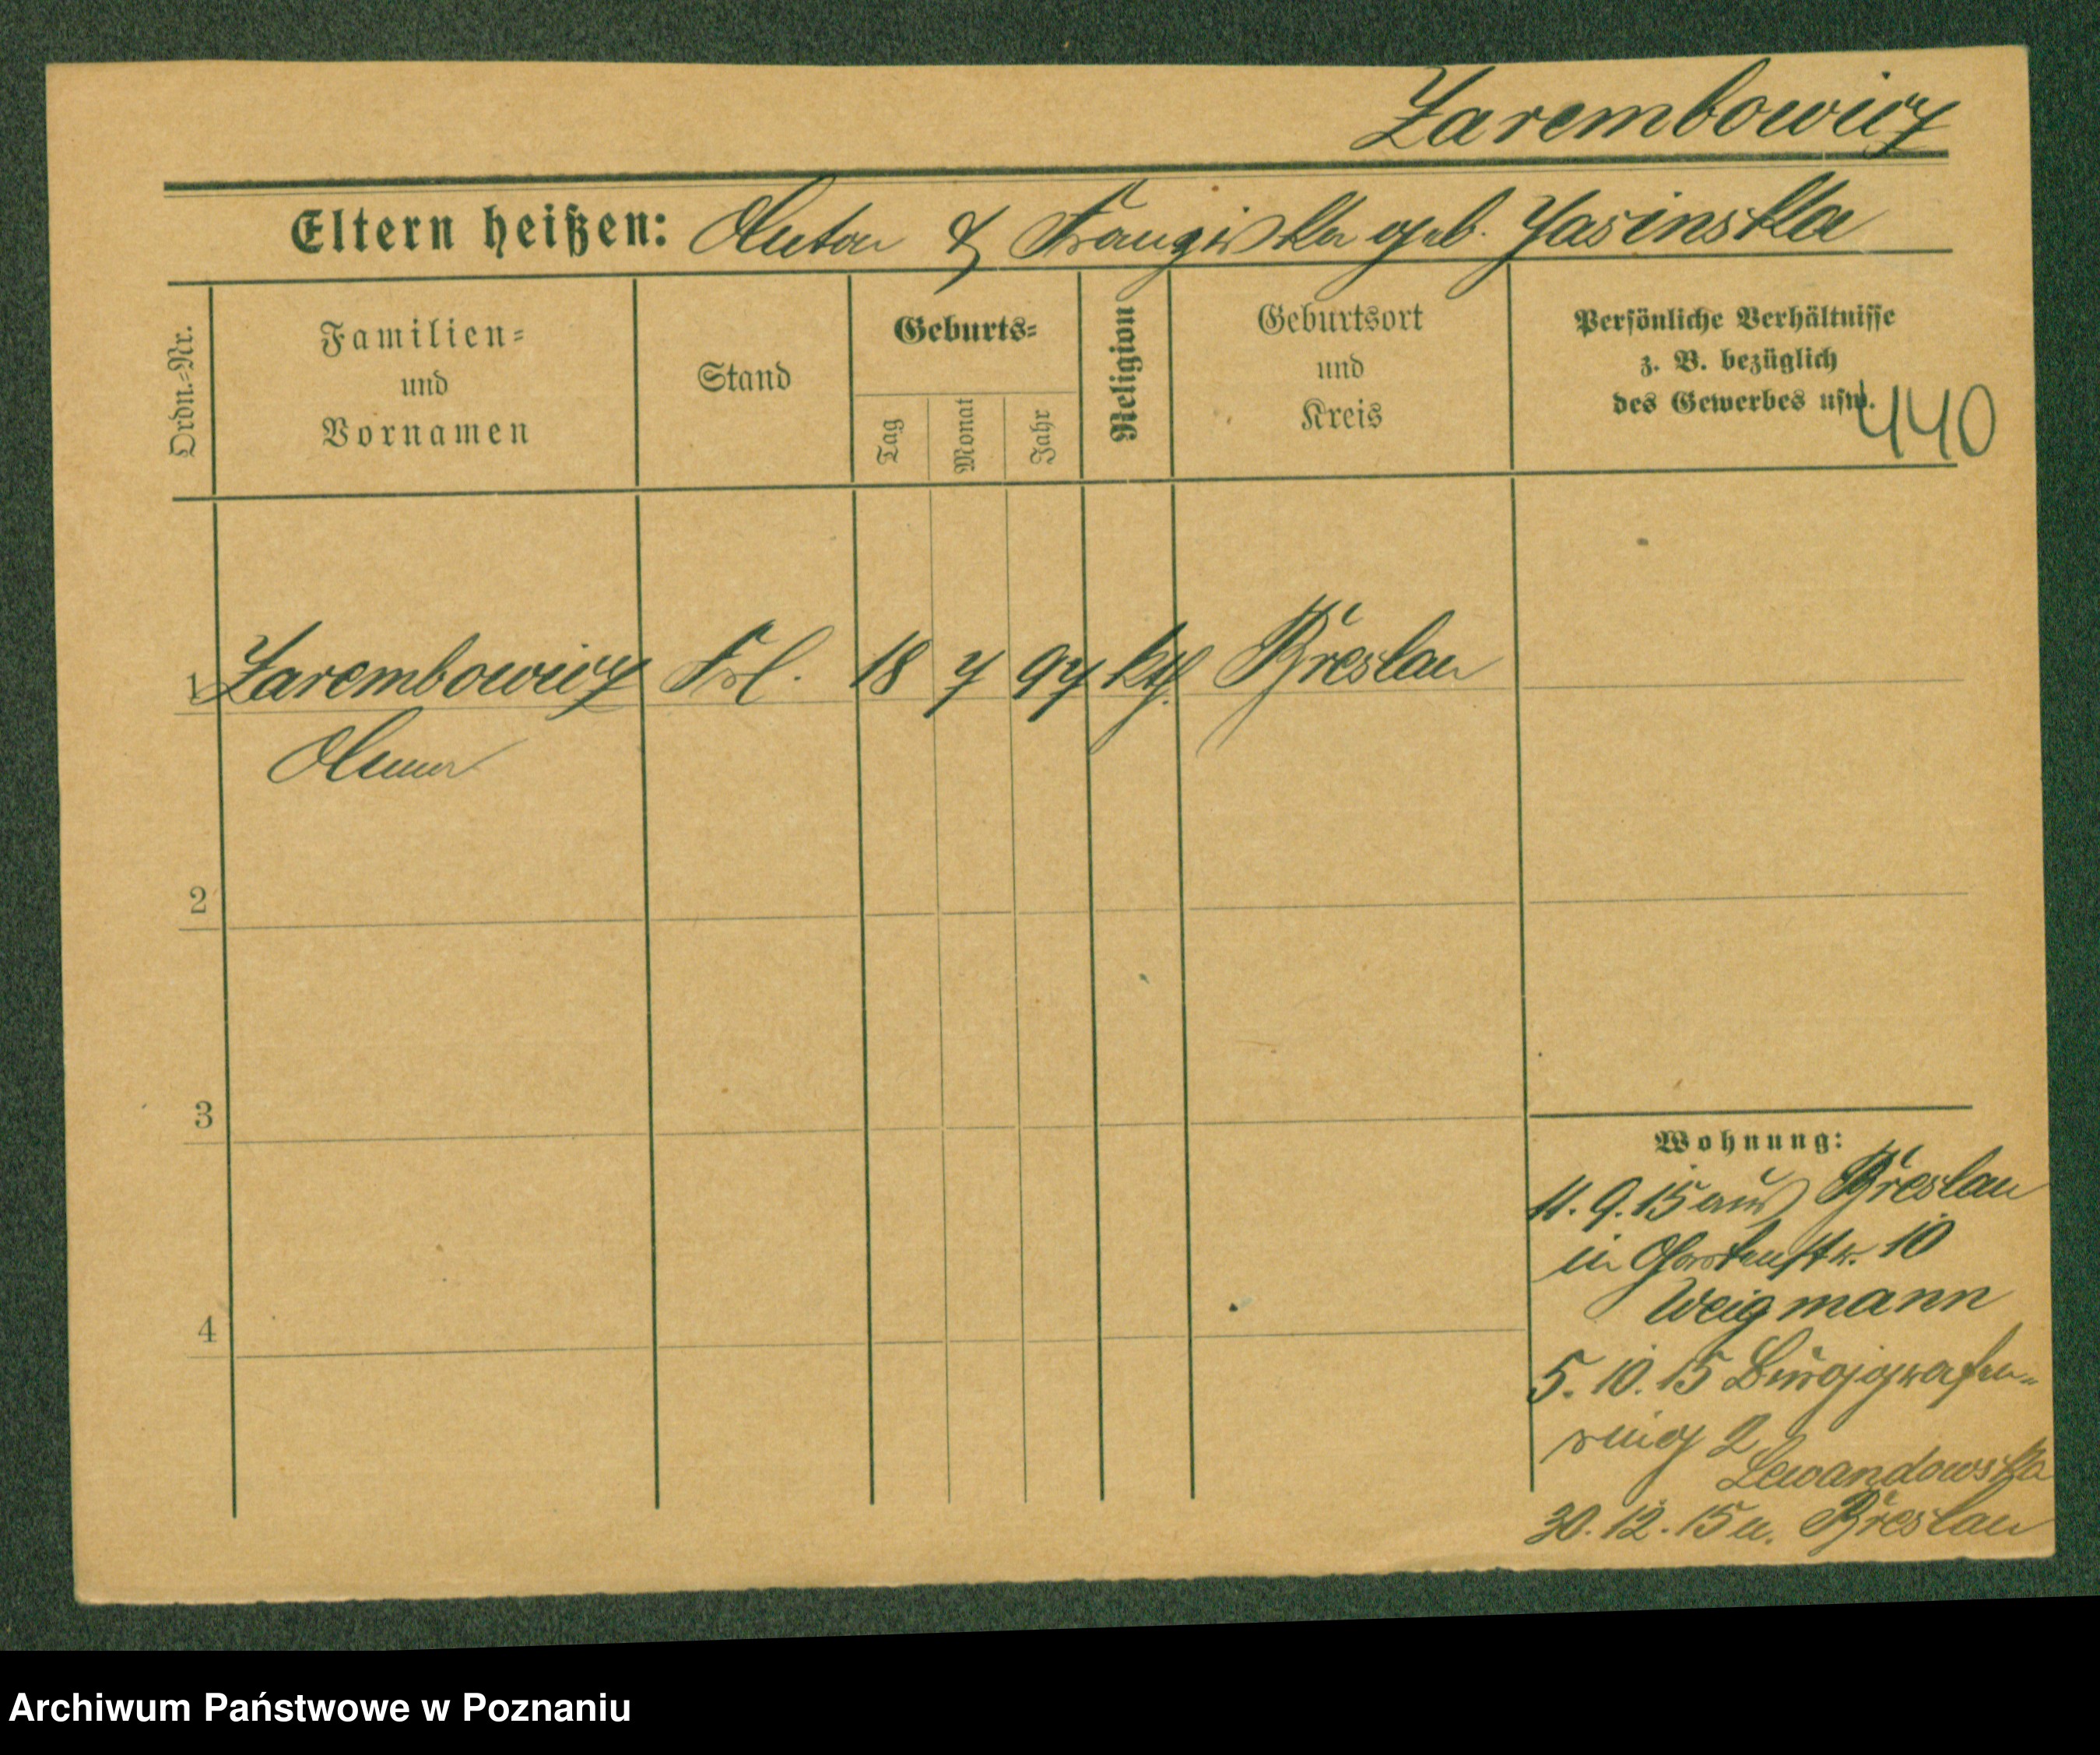 Zarembowicz
Eltern heißen: Anton & Franziska geb. Jasinska
Ordn.=Nr.
Familien=
und
Vornamen
Stand
Geburts=
Tag
Monat
Jahr
Religion
Geburtsort
und
Kreis
Persönliche Verhältnisse
z. B. bezüglich
des Gewerbes usw.
440
1 Zarembowicz Frl. 18 7 97 kth. Breslau
Anna
2
3
4
Wohnung:
11. 9. 15 aus Breslau
in Gartenstr. 10
Weigmann
5. 10. 15 Burggrafen-
ring 2
Lewandowska
30. 12. 15 n. Breslau
Archiwum Państwowe w Poznaniu